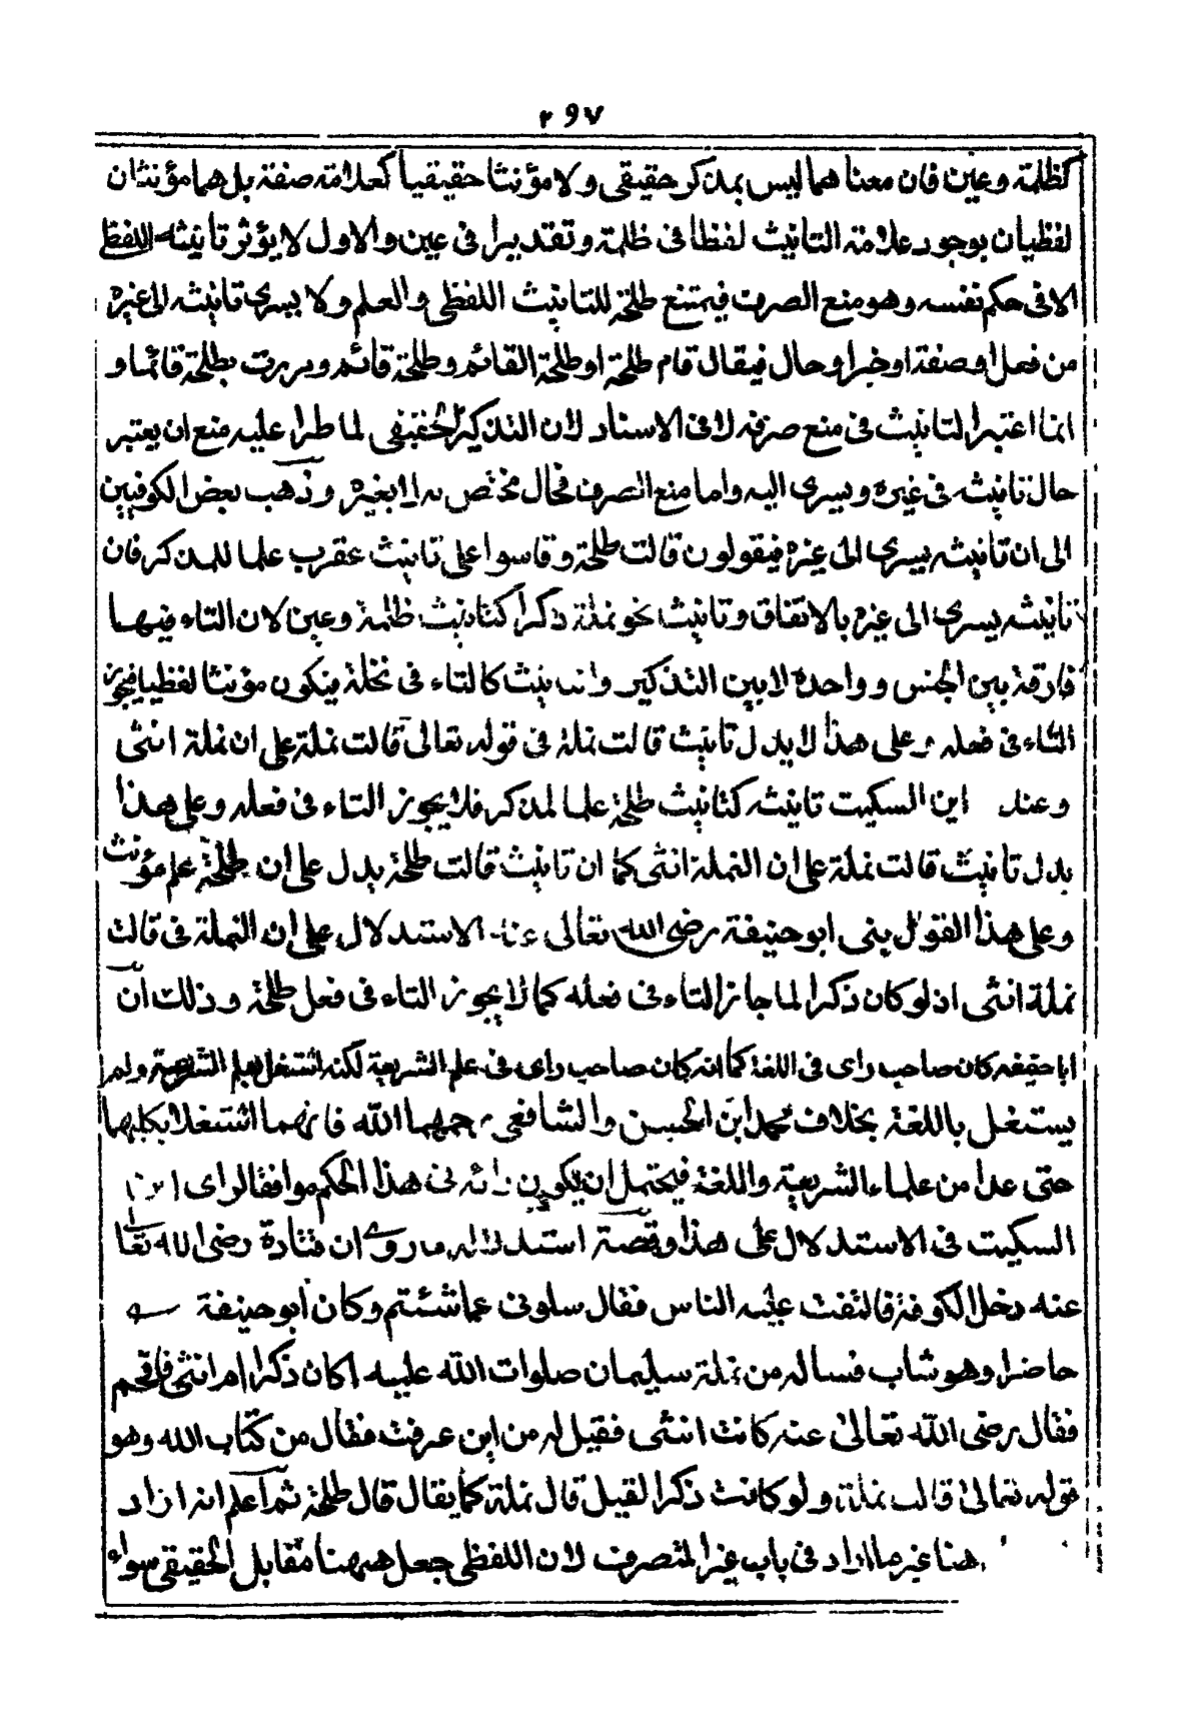 ٢٩٧
كظلمة وعين فان معناهما ليس بمذكر حقيقى ولا مؤنثا حقيقيا كعلامة صفة بل هما مؤنثان
لفظيان بوجود علامة التانيث لفظا فى ظلمة وتقديرا فى عين والاول لا يؤثر تانيثه اللفظى
الا فى حكم نفسه وهو منع الصرف فيمتنع طلحة للتانيث اللفظى والعلم ولا يسرى تانيثه الى غيره
من فعل او صفة او خبر او حال فيقال قام طلحة او طلحة القائم وطلحة قائم ومررت بطلحة قائما و
انما اعتبر التانيث فى منع صرفه لا فى الاسناد لان التذكير الحقيقى لما طرا عليه منع ان يعتبر
حال تانيثه فى غيره ويسرى اليه واما منع الصرف فحال مختص به لا بغيره وذهب بعض الكوفيين
الى ان تانيثه يسرى الى غيره فيقولون قالت طلحة وقاسوا على تانيث عقرب علما للمذكر فان
تانيثه يسرى الى غيره بالاتفاق وتانيث نحو نملة ذكرا كتانيث ظلمة وعين لان التاء فيها
فارقة بين الجنس وواحدة لا بين التذكير والتانيث كالتاء فى نخلة فيكون مؤنثا لفظيا فيجوز
التاء فى فعله وعلى هذا لا يدل تانيث قالت نملة فى قوله تعالى قالت نملة على ان نملة انثى
وعند ابن السكيت تانيثه كتانيث طلحة علما لمذكر فلا يجوز التاء فى فعله وعلى هذا
يدل تانيث قالت نملة على ان النملة انثى كما ان تانيث قالت طلحة يدل على ان طلحة علم مؤنث
وعلى هذا القول بنى ابو حنيفة رضى الله تعالى عنه الاستدلال على ان النملة فى قالت
نملة انثى اذ لو كان ذكرا لما جاز التاء فى فعله كما لا يجوز التاء فى فعل طلحة وذلك ان
ابا حنيفه كان صاحب راى فى اللغة كما انه كان صاحب راى فى علم الشريعة لكنه اشتغل بعلم الشريعة ولم
يشتغل باللغة بخلاف محمد ابن الحسن والشافعى رحمهما الله فانهما اشتغلا بكليهما
حتى عدا من علماء الشريعة واللغة فيحتمل ان يكون رائه فى هذا الحكم موافقا لراى ابن
السكيت فى الاستدلال على هذا وقصة استدلاله ما روى ان قتادة رضى الله تعا
عنه دخل الكوفة فالتفت عليه الناس فقال سلونى عما شئتم وكان ابو حنيفة
حاضرا وهو شاب فساله من نملة سليمان صلوات الله عليه اكان ذكرا ام انثى فافحم
فقال رضى الله تعالى عنه كانت انثى فقيل له من اين عرفت فقال من كتاب الله وهو
قوله تعالى قالت نملة ولو كانت ذكرا لقيل قال نملة كما يقال قال طلحة ثم اعلم انه اراد
هنا غير ما اراد فى باب غير المنصرف لان اللفظى جعل ههنا مقابل الحقيقى سواء